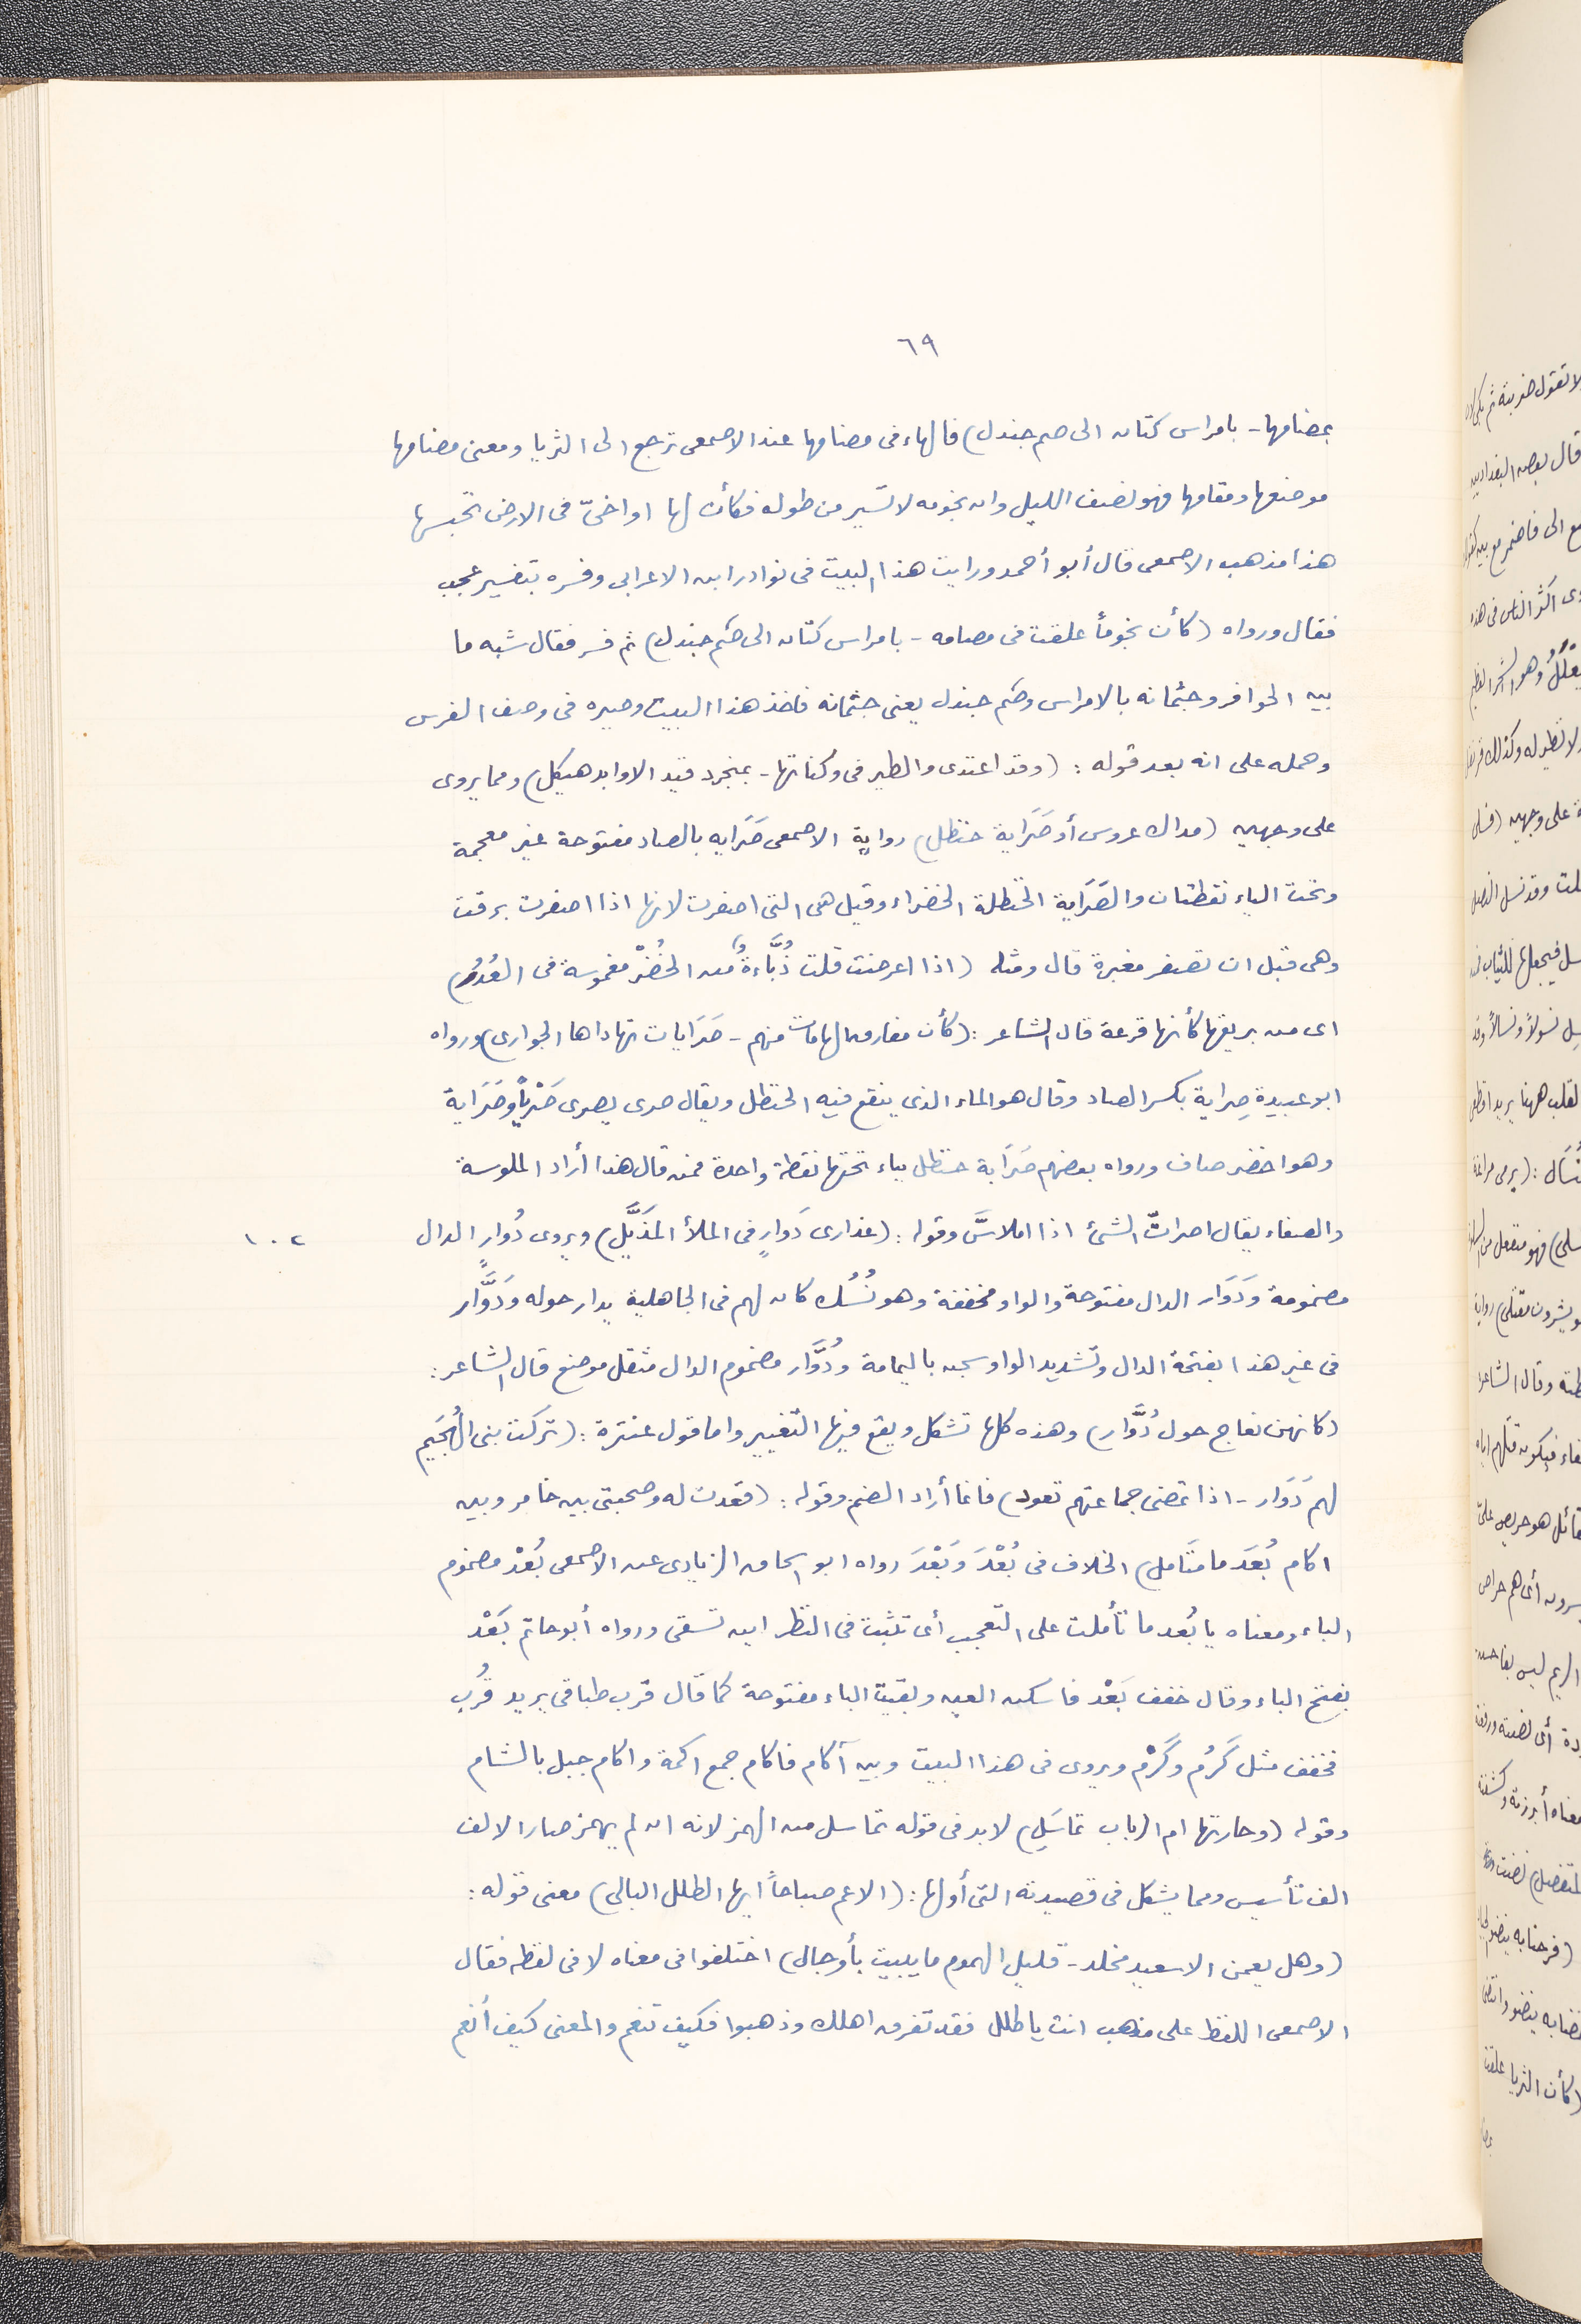 ٦٩
بمضامها - بامراس كتان الى صم جندل) فالهاء فى مصامها عند الاصمعى ترجع الى الثريا ومعنى مصامها
موضعها ومقامها فهو يصف الليل وان نجومه لا تسير من طوله فكأن لها اواخىّ فى الارض تحبسها
هذا مذهب الاصمعى قال أبو أحمد ورايت هذا البيت فى نوادر ابن الاعرابى وفسره بتفسير عجب
فقال ورواه (كأن نجوماً علقت فى مصامه - بامراس كتان الى صُم جندل) ثم فسر فقال شبه ما
بين الحوافر وجثمانه بالامراس وصُم جندل يعنى جثمانه فاخذ هذا البيت وصيره فى وصف الفرس
وحمله على انه بعد قوله : (وقد اغتدى والطير فى وكناتها - بمنجرد قيد الاوابد هيكل) ومما يروى
على وجهين (مداك عروس أو صَرَاية حنظل) رواية الاصمعى صَرَايه بالصاد مفتوحة غير معجمة
وتحت الياء نقطتان والصَّرَاية الحنظلة الخضراء وقيل هى التى اصفرت لانها اذا اصفرت برقت
وهى قبل ان تصفر مغبرة قال ومثله (اذا اعرضت قلت دُبَّاءةٌ من الخُضْر مغموسة فى الغُدُر)
اى من بريقها كأنها قرعة قال الشاعر : (كأن مفارق الهامات منهم - صَرَايات تهاداها الجوارى) ورواه
ابو عبيدة صِراية بكسر الصاد وقال هو الماء الذى ينقع فيه الحنظل ويقال صرى يصرى صَرْياً وصَرَاية
وهو اخضر صاف ورواه بعضهم صَرَابة حنظل بباء تحتها نقطة واحدة فمن قال هذا أراد الملوسة
والصفاء يقال اصرابّ الشئ اذا املاسَّ وقوله : (عذارى دَوارٍ فى الملأ المذَيَّل) ويروى دُوارٍ الدال ١٠٢
مضمومة وَدَوَار الدال مفتوحة والواو مخففة وهو نُسُك كان لهم فى الجاهلية يدار حوله وَدَوَّار
فى غير هذا بفتحة الدال وتشديد الواو سجن باليمامة ودُوَّار مضموم الدال مثقل موضع قال الشاعر :
(كانهن نعاج حول دُوَّار) وهذه كلها تشكل ويقع فيها التغيير واما قول عنترة : (تركت بنى الهُجَيم
لهم دَوَار - اذا تمضى جماعتهم تعود) فانما أراد الصنم وقوله : (قعدت له وصحبتى بين ضامر وبين
اكام بُعَدَ ما مَتَأمل) الخلاف فى بُعْدَ وَبَعْدَ رواه ابو اسحاق الزيادى عن الاصمعى بُعْد مضموم
الباء ومعناه يا بُعد ما تأملت على التعجب أى تثبت فى النظر اين تسقى ورواه أبو حاتم بَعْد
بفتح الباء وقال خفف بَعْد فاسكن العين وبقيت الباء مفتوحة كما قال قرب طباقى يريد قرُب
فخفف مثل كَرُم وكَرْم ويروى فى هذا البيت وبين آكام فاكام جمع اكمة واكام جبل بالشام
وقوله (وجارتها ام الرباب بمَاسَلِ) لابد فى قوله بماسل من الهمز لانه ان لم يهمز صار الالف
الف تأسيس ومما يشكل فى قصيدته التى أولها : (الا عم صباحاً ايها الطلل البالى) معنى قوله :
(وهل يعمن الا سعيد مخلد - قليل الهموم ما يبيت بأوجال) اختلفوا فى معناه لا فى لفظه فقال
الاصمعى اللفظ على مذهب انت يا طلل فقد تفرق اهلك وذهبوا فكيف تنعم والمعنى كيف أنعم